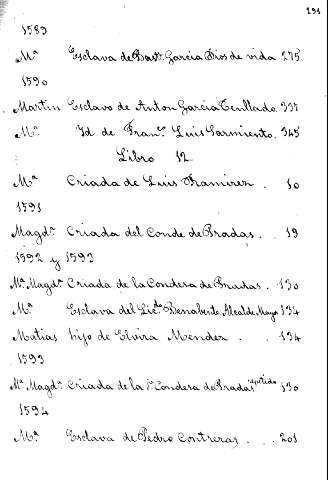 291
1589
Mª Esclava de Bartᵉ Garcia Dios de vida 275
1590
Martin Esclavo de Anton Garcia Tentlado. 337
Mª Id de Franᶜᵒ Luis Sarmiento. 345
Libro 12.
Mª Criada de Luis Ramirez . 10
1591
Magdª Criada del Conde de Pradas. . 19
1592 y 1593
Mª Magdª Criada de la Condesa de Pradas. . 130
Mª Esclava del Licᵈᵒ Benabente, Alcalde Mayor 134
Matias hijo de Elvira Mendez . . 134
1593
Mª Magdª Criada de la Sª Condesa de Pradas repetido 130
1594
Mª Esclava de Pedro Contreras. . . . 201